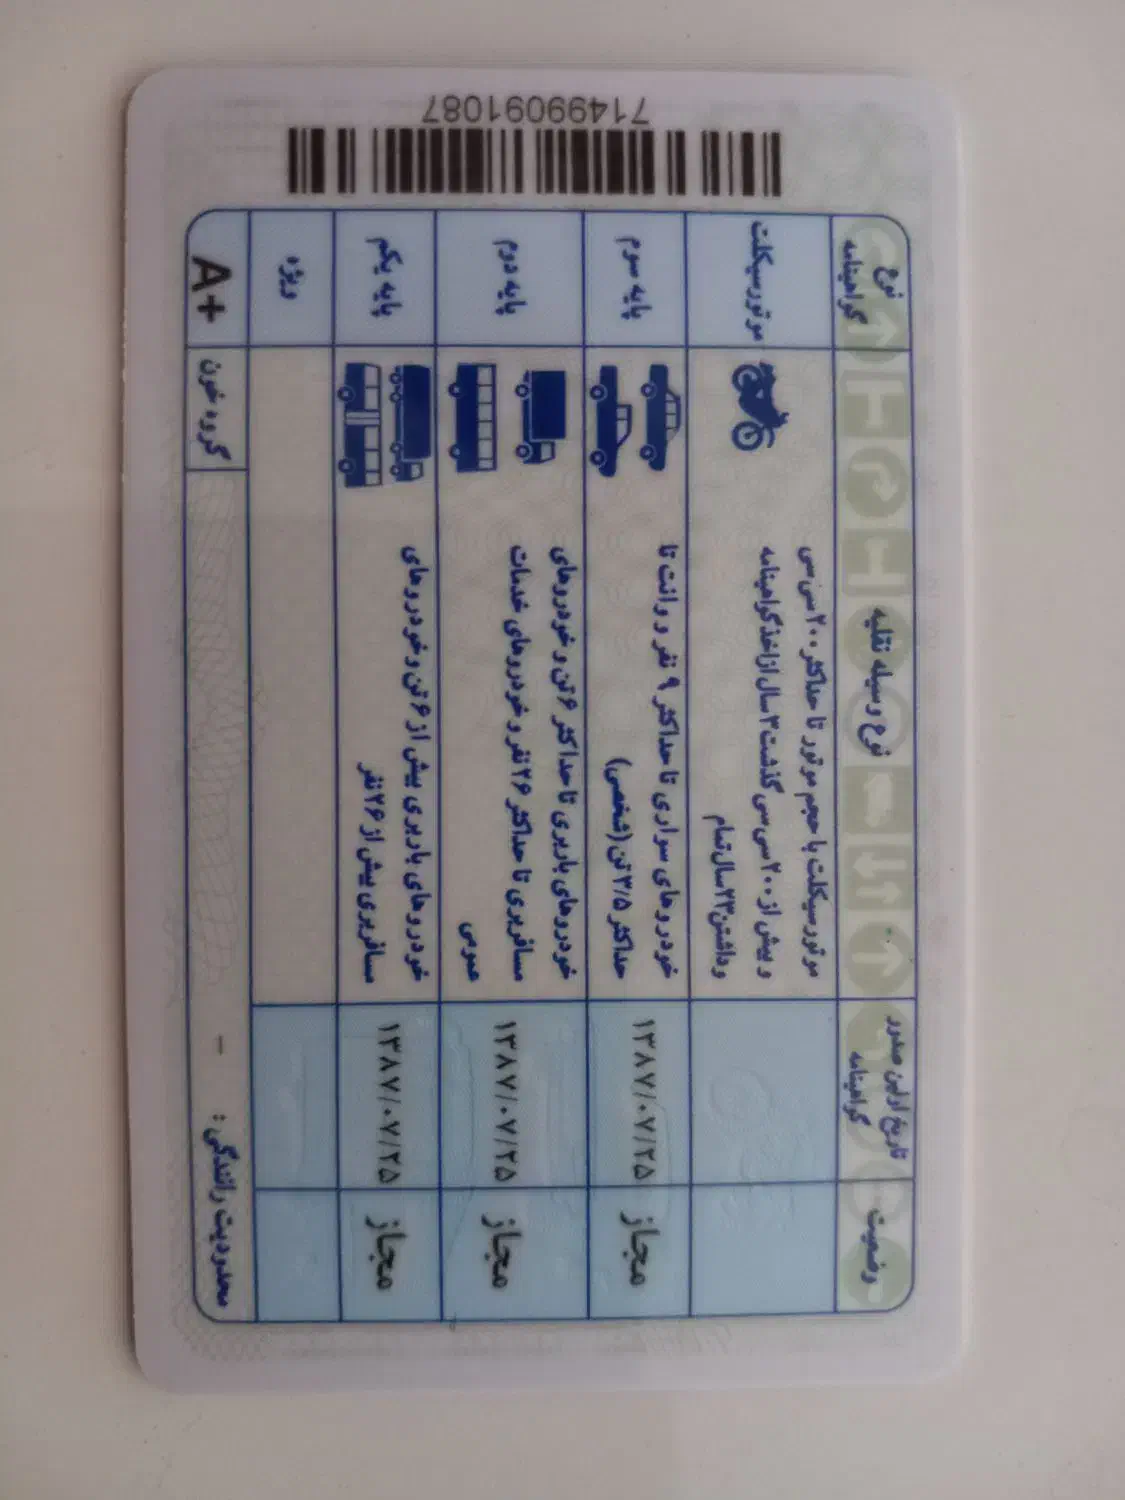 نوع گواهینامه
نوع وسیله نقلیه
تاریخ اولین صدور گواهینامه
وضعیت
موتورسیکلت
موتورسیکلت با حجم موتور تا حداکثر ۲۰۰ سی سی
و بیش از ۲۰۰ سی سی گذشت ۳ سال از اخذ گواهینامه
و داشتن ۲۳ سال تمام
پایه سوم
خودروهای سواری تا حداکثر ۹ نفر و وانت تا
حداکثر ۳/۵ تن (شخصی)
۱۳۸۷/۰۷/۲۵
مجاز
پایه دوم
خودروهای باربری تا حداکثر ۶ تن و خودروهای
مسافربری تا حداکثر ۲۶ نفر و خودروهای خدمات
عمومی
۱۳۸۷/۰۷/۲۵
مجاز
پایه یکم
خودروهای باربری بیش از ۶ تن و خودروهای
مسافربری بیش از ۲۶ نفر
۱۳۸۷/۰۷/۲۵
مجاز
ویژه
A+
گروه خون
محدودیت رانندگی : -
71499091087